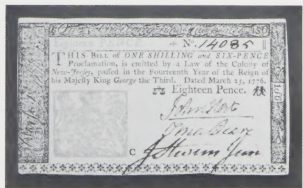 N. 14085
THIS BILL of ONE SHILLING and SIX-PENCE
Proclamation, is emitted by a Law of the Colony of
New-Jersey, passed in the Fourteenth Year of the Reign of
his Majesty King George the Third. Dated March 25, 1776.
Eighteen Pence.
John Hart
C J Stevens Junr